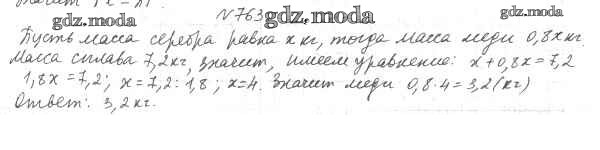 gdz.moda
№763
gdz.moda
gdz.moda
Пусть масса серебра равна x кг, тогда масса меди 0,8x кг.
Масса сплава 7,2 кг, значит, имеем уравнение: x + 0,8x = 7,2
1,8x = 7,2; x = 7,2 : 1,8; x = 4. Значит меди 0,8 · 4 = 3,2 (кг)
Ответ: 3,2 кг.